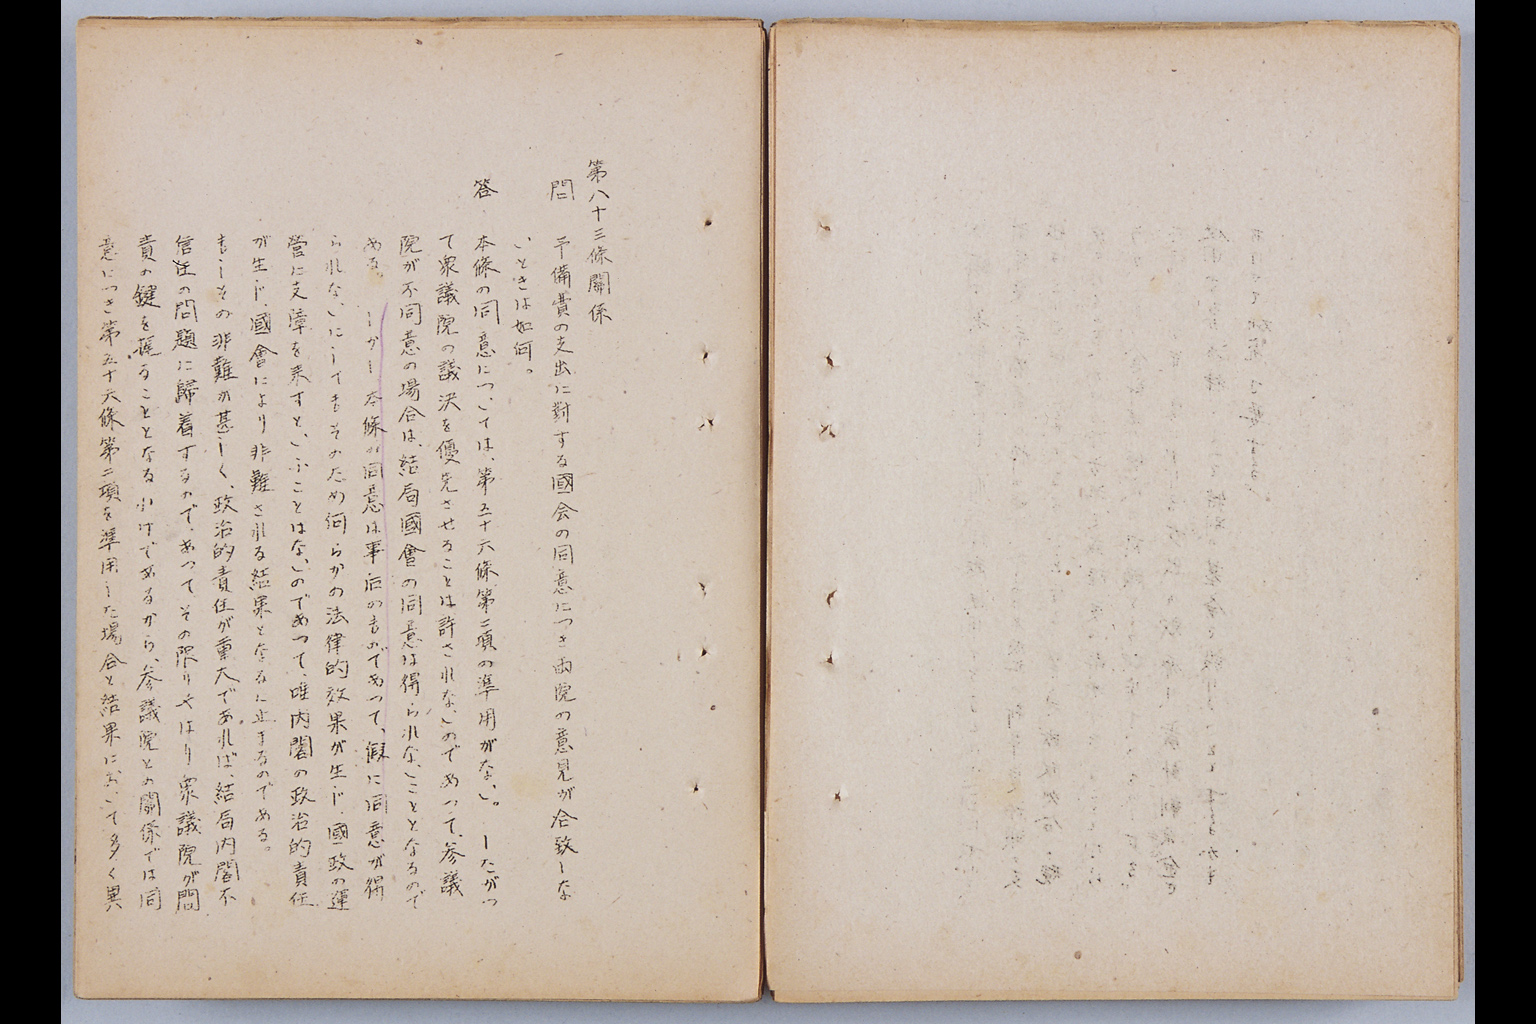 第八十三條關係
問 予備費の支出に對する國会の同意につき両院の意見が合致しな
いときは如何。
答 本條の同意については、第五十六條第二項の準用がない。したがつ
て衆議院の議決を優先させることは許されないのであつて、参議
院が不同意の場合は、結局國會の同意は得られないこととなるので
ある。しかし本條の同意は事后のものであつて、假に同意が得
られないにしてもそのため何らかの法律的效果が生じ、國政の運
營に支障を來すといふことはないのであつて、唯内閣の政治的責任
が生じ、國會により非難される結果となるに止まるのである。
もしその非難が甚しく、政治的責任が重大であれば、結局内閣不
信任の問題に歸着するので、あつてその限りやはり衆議院が問
責の鍵を握ることとなるわけであるから、参議院との關係では同
意につき第五十六條第二項を準用した場合と結果において多く異